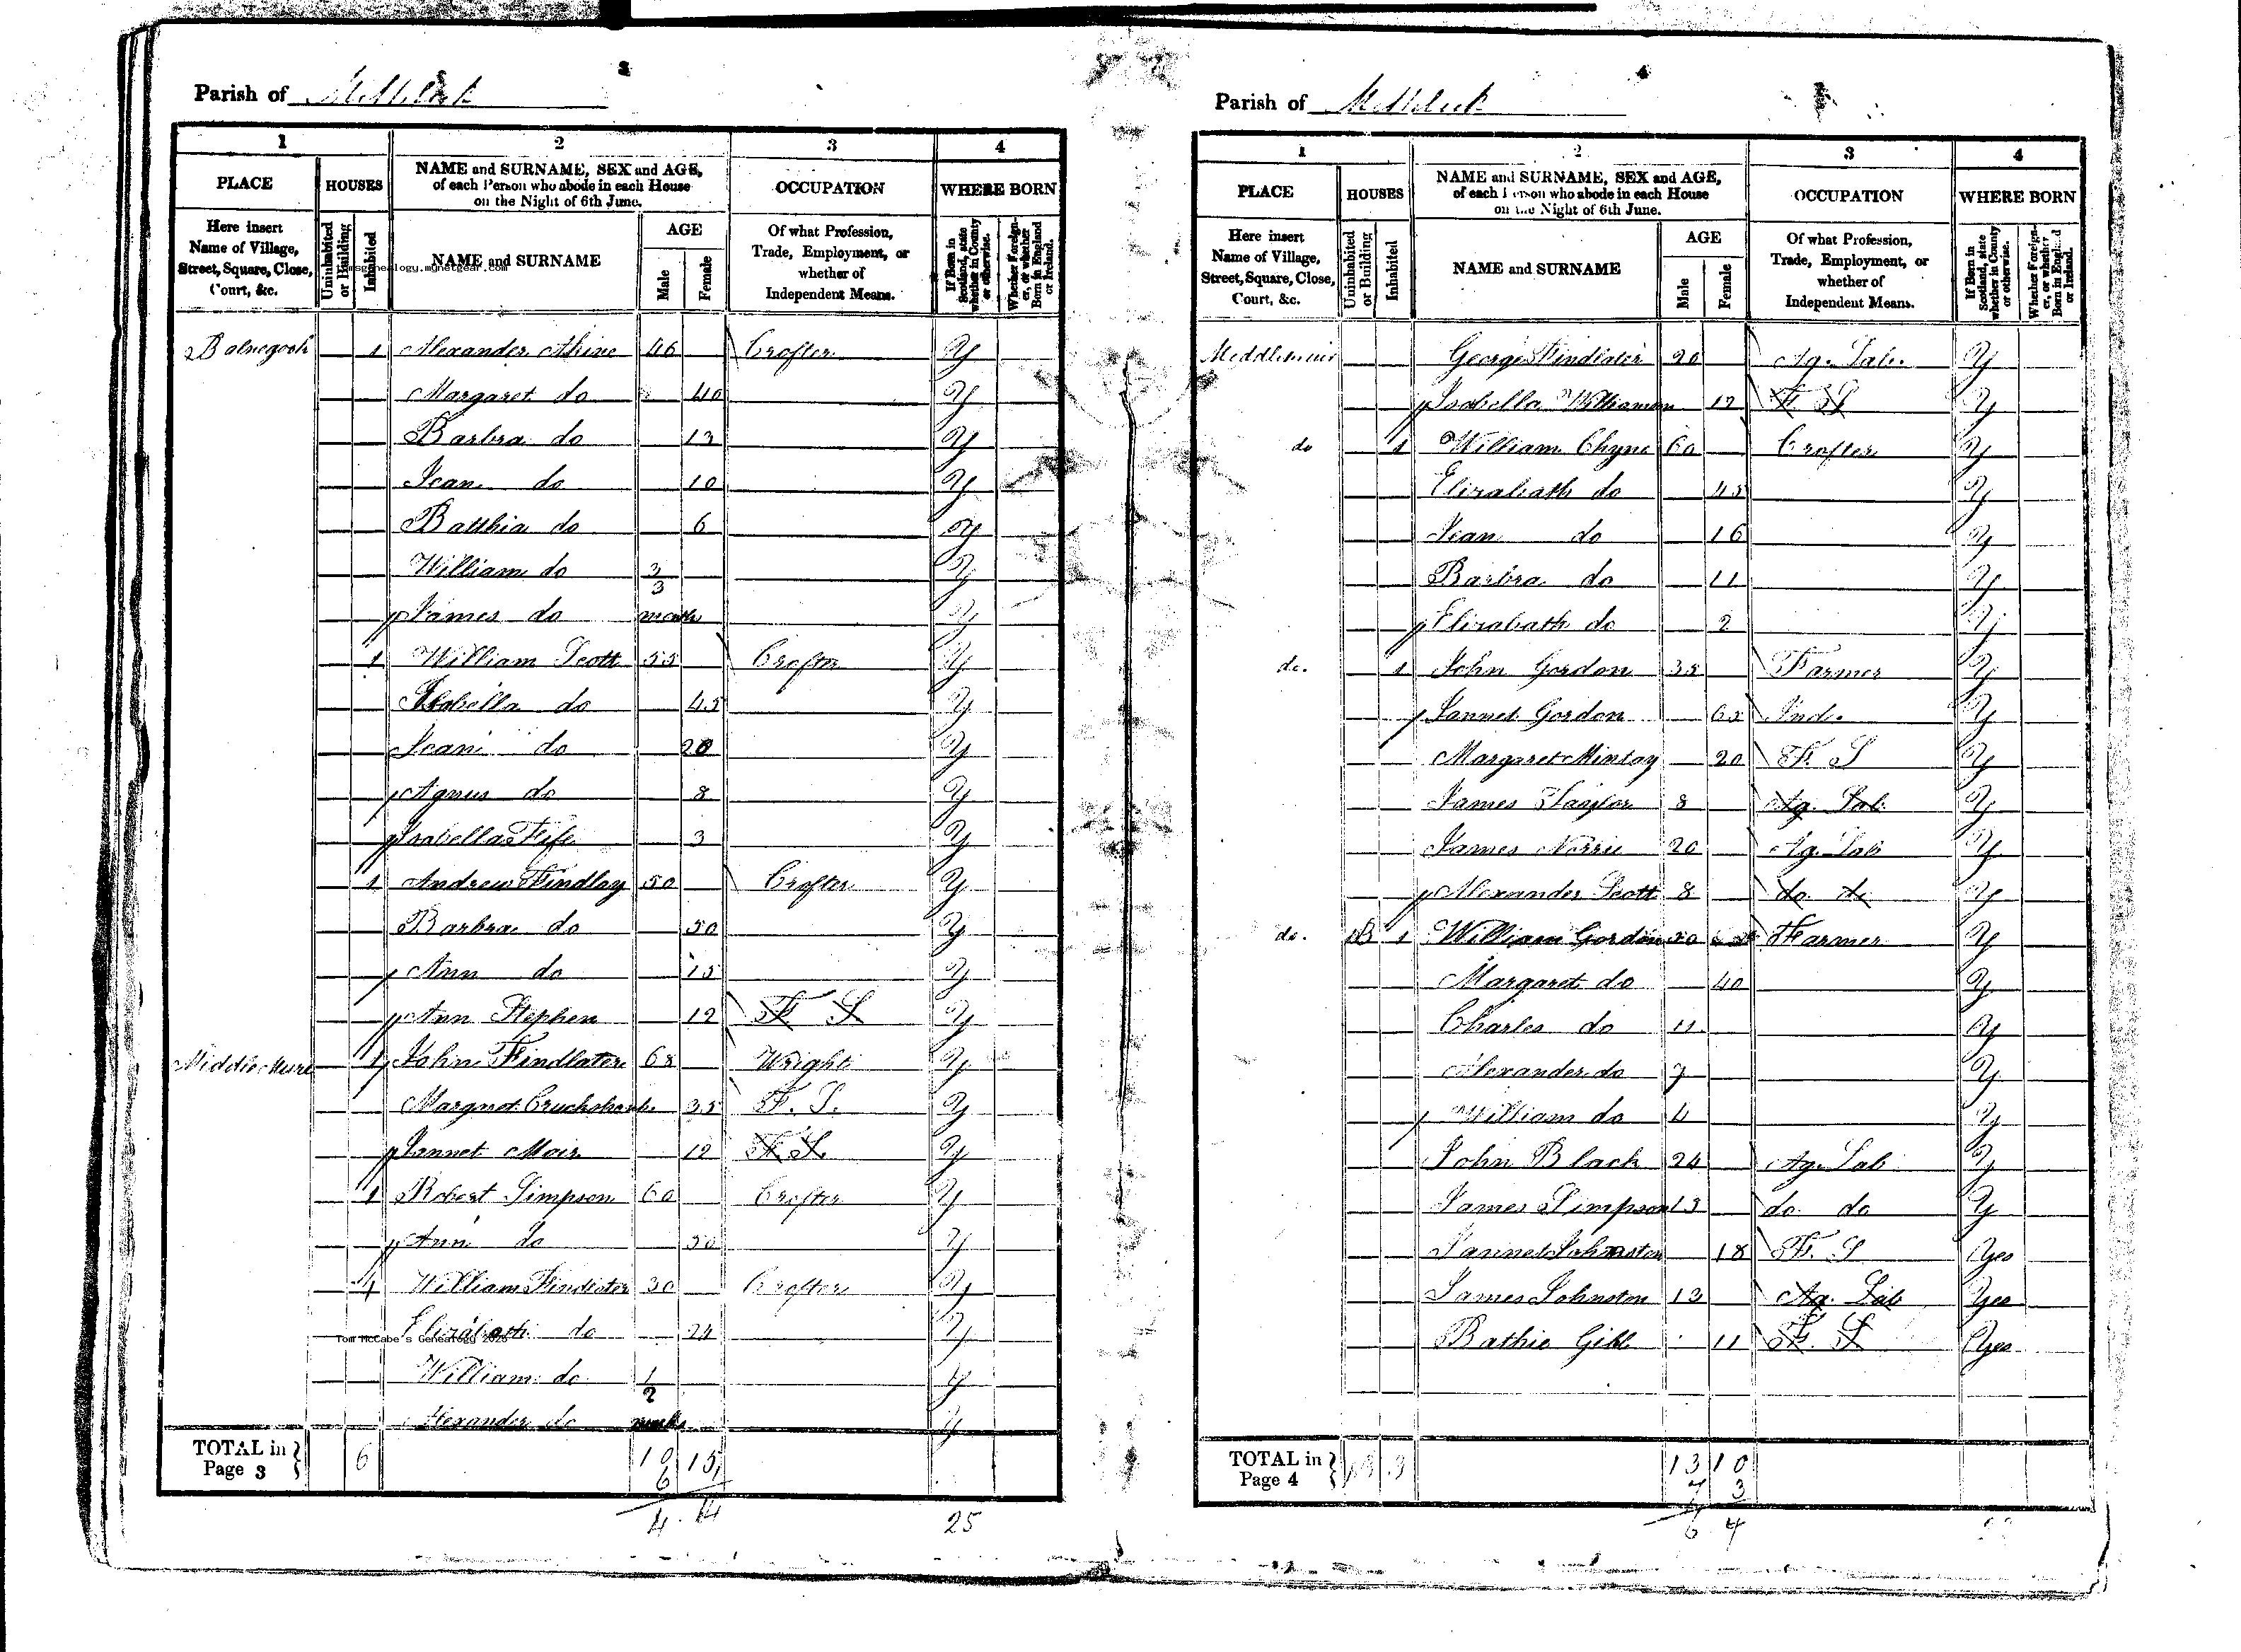 Parish of Methlick
1 2 3 4
PLACE HOUSES NAME and SURNAME, SEX and AGE, of each Person who abode in each House on the Night of 6th June. OCCUPATION WHERE BORN
Here insert Name of Village, Street, Square, Close, Court, &c. Uninhabited or Building Inhabited NAME and SURNAME AGE Male Female Of what Profession, Trade, Employment, or whether of Independent Means. If Born in Scotland, state whether in County or otherwise. Whether Foreigner, or whether Born in England or Ireland.
msgenealogy.mynetgear.com
1 Alexander 46 Crofter Y
Margaret do 40 Y
Barbra do 13 Y
Jean do 10 Y
Batthia do 6 Y
William do 3 Y
James do 3 month Y
1 William Scott 55 Crofter Y
Isabella do 45 Y
Jean do 20 Y
Agnus do 8 Y
Isabella Fife 3 Y
1 Andrew Findlay 50 Crofter Y
Barbra do 50 Y
Ann do 15 Y
Ann Stephen 12 F S Y
Middle Muir 1 John Findlater 68 Wright Y
Margret Cruckshank 35 F. S. Y
Jannet Mair 12 F S. Y
1 Robert Simpson 60 Crofter Y
Ann do 50 Y
1 William Findlater 30 Crofter Y
Elizabath do 24 Y
Tom McCabe's Genealogy 2025
William do 1 Y
Alexander do 2 weeks Y
TOTAL in Page 3 6 10 15
6
4 14 25
Parish of Methlick
1 2 3 4
PLACE HOUSES NAME and SURNAME, SEX and AGE, of each Person who abode in each House on the Night of 6th June. OCCUPATION WHERE BORN
Here insert Name of Village, Street, Square, Close, Court, &c. Uninhabited or Building Inhabited NAME and SURNAME AGE Male Female Of what Profession, Trade, Employment, or whether of Independent Means. If Born in Scotland, state whether in County or otherwise. Whether Foreigner, or whether Born in England or Ireland.
Meddlemuir George Findlater 20 Ag. Lab. Y
Isabella Williamson 12 F S Y
do 1 William Chyne 60 Crofter Y
Elizabath do 45 Y
Jean do 16 Y
Barbra do 11 Y
Elizabath do 2 Y
do. 1 John Gordon 35 Farmer Y
Jannet Gordon 65 Ind. Y
Margaret Mintay 20 F. S Y
James Taylor 8 Ag. Lab Y
James Norrie 20 Ag. Lab Y
Alexander Scott 8 do. do Y
do. 1B 1 William Gordon 50 Farmer Y
Margaret do 40 Y
Charles do 11 Y
Alexander do 7 Y
William do 4 Y
John Black 24 Ag. Lab Y
James Simpson 13 do do Y
Jannet Johnston 18 F. S Yes
James Johnston 13 Ag. Lab Yes
Bathie Gibb 11 F. S Yes
TOTAL in Page 4 1B 3 13 10
7 3
6 4